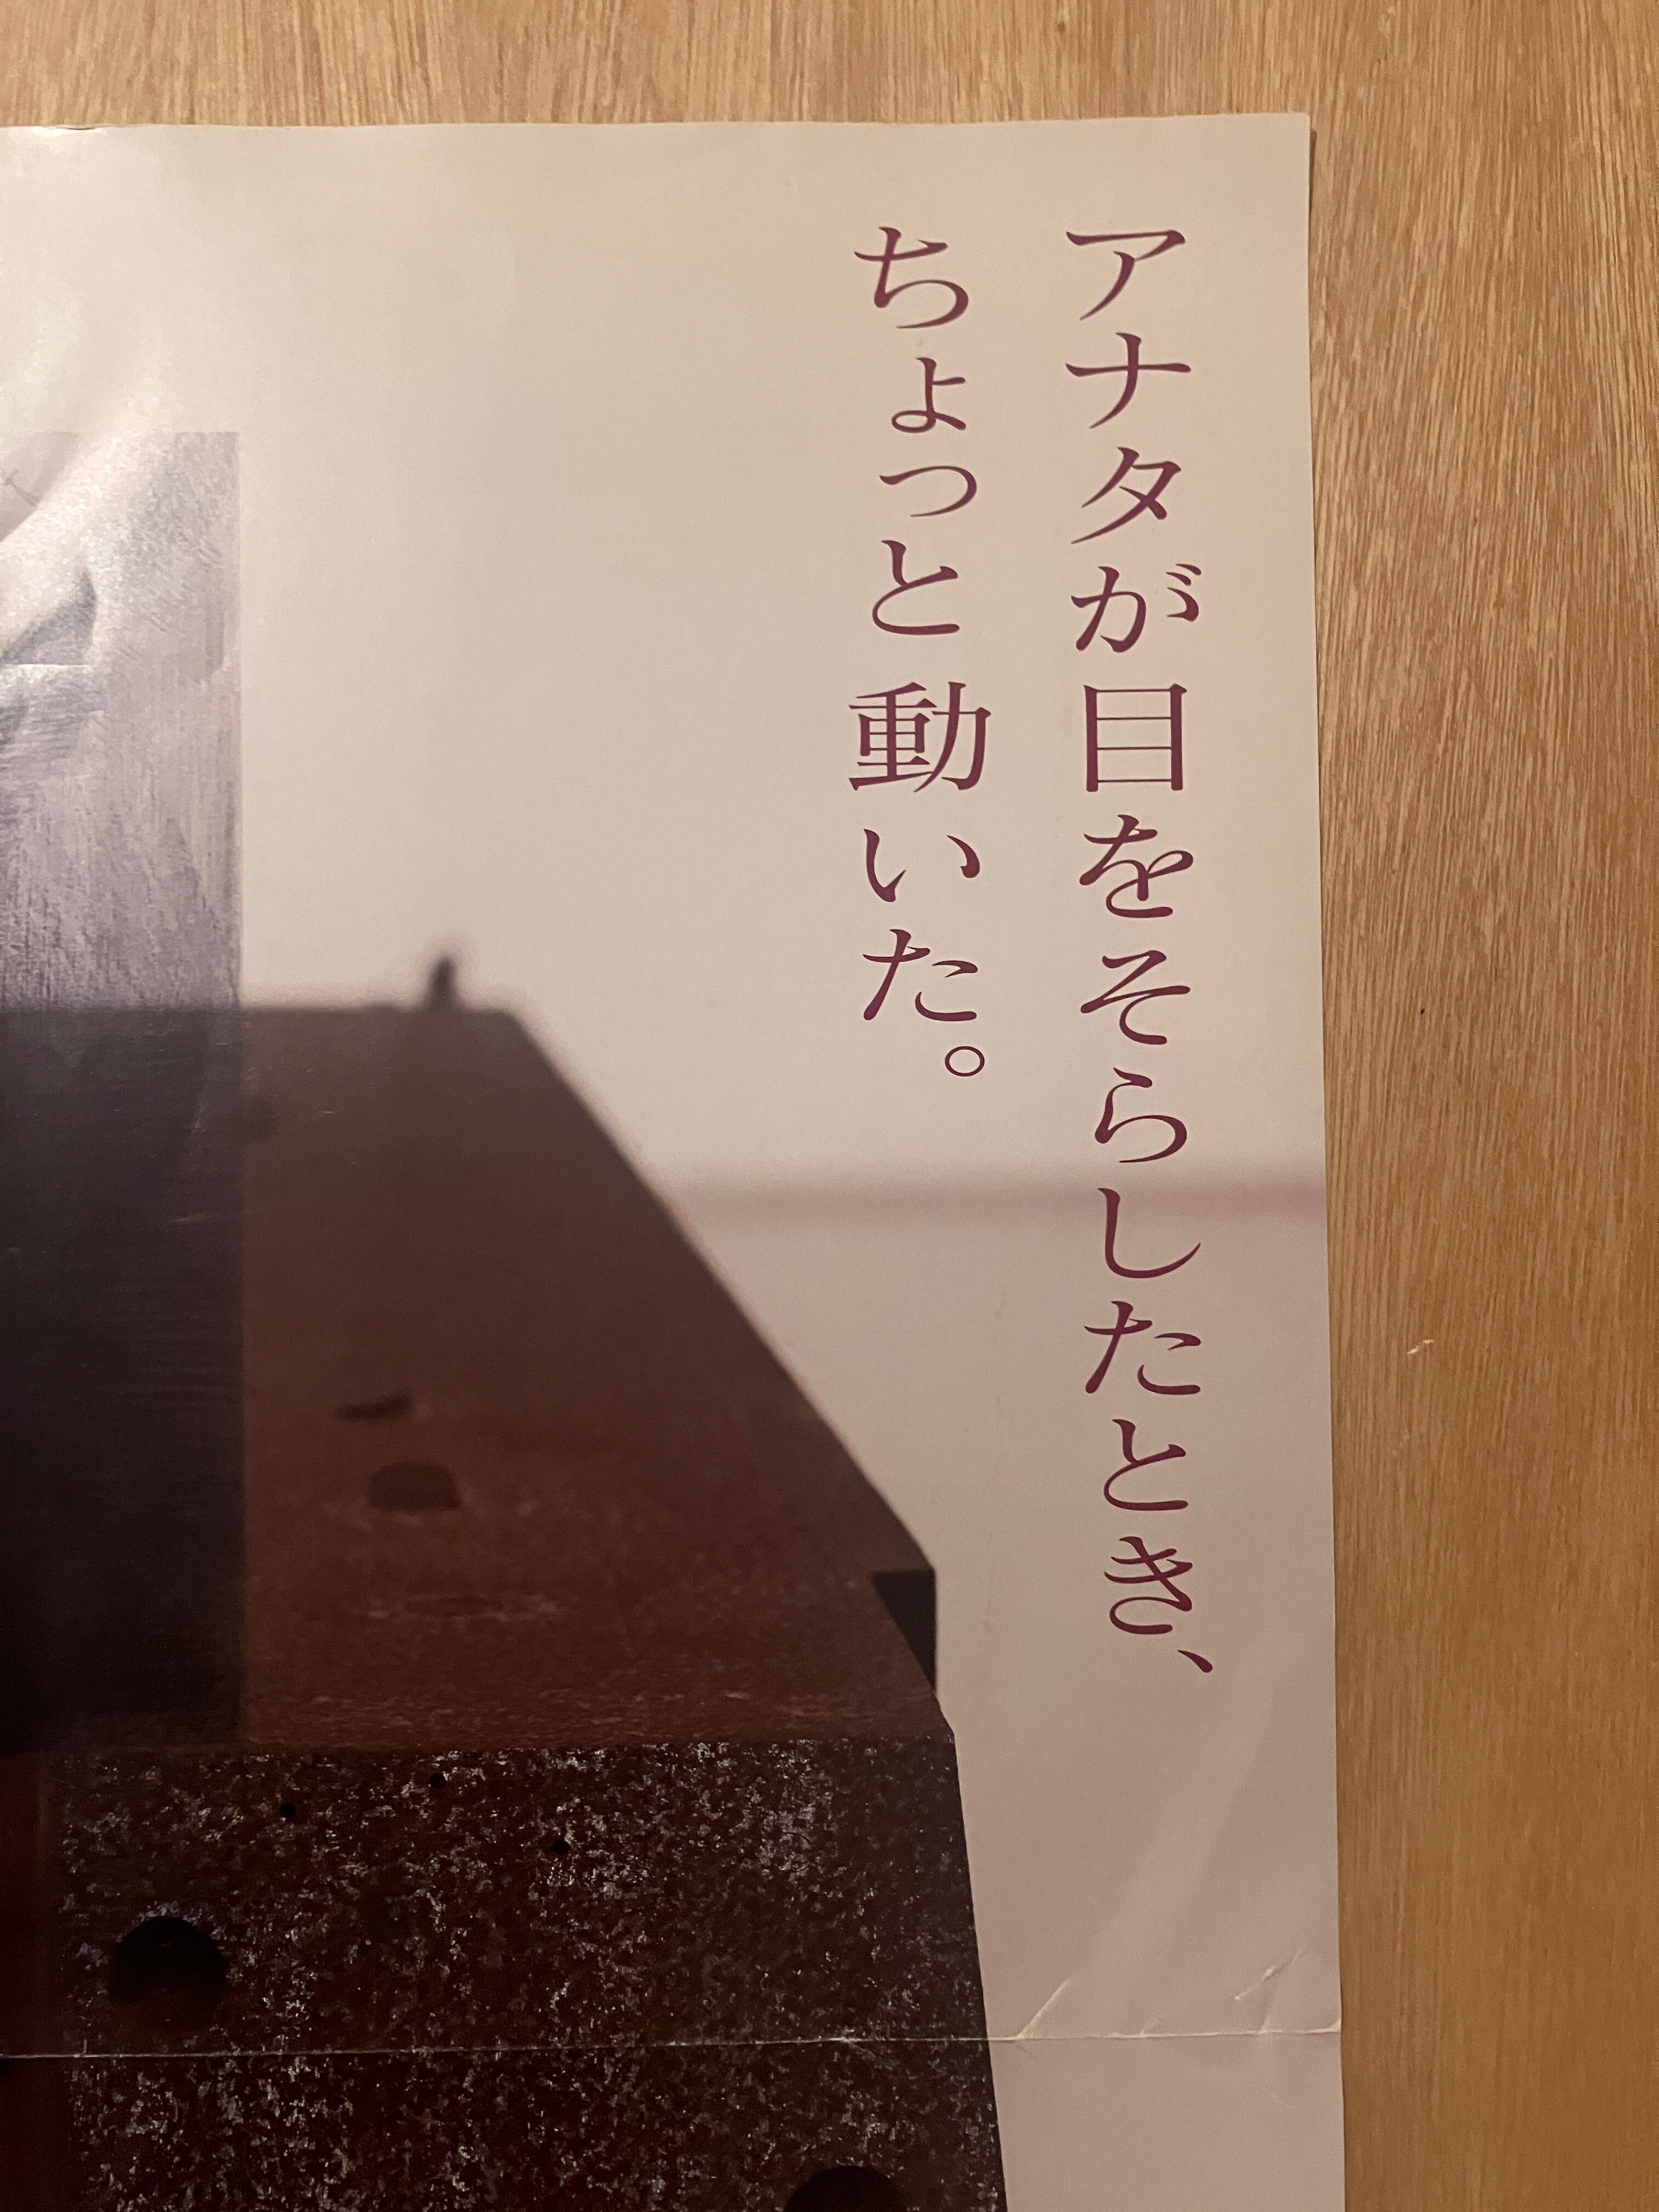 アナタが目をそらしたとき、
ちょっと動いた。